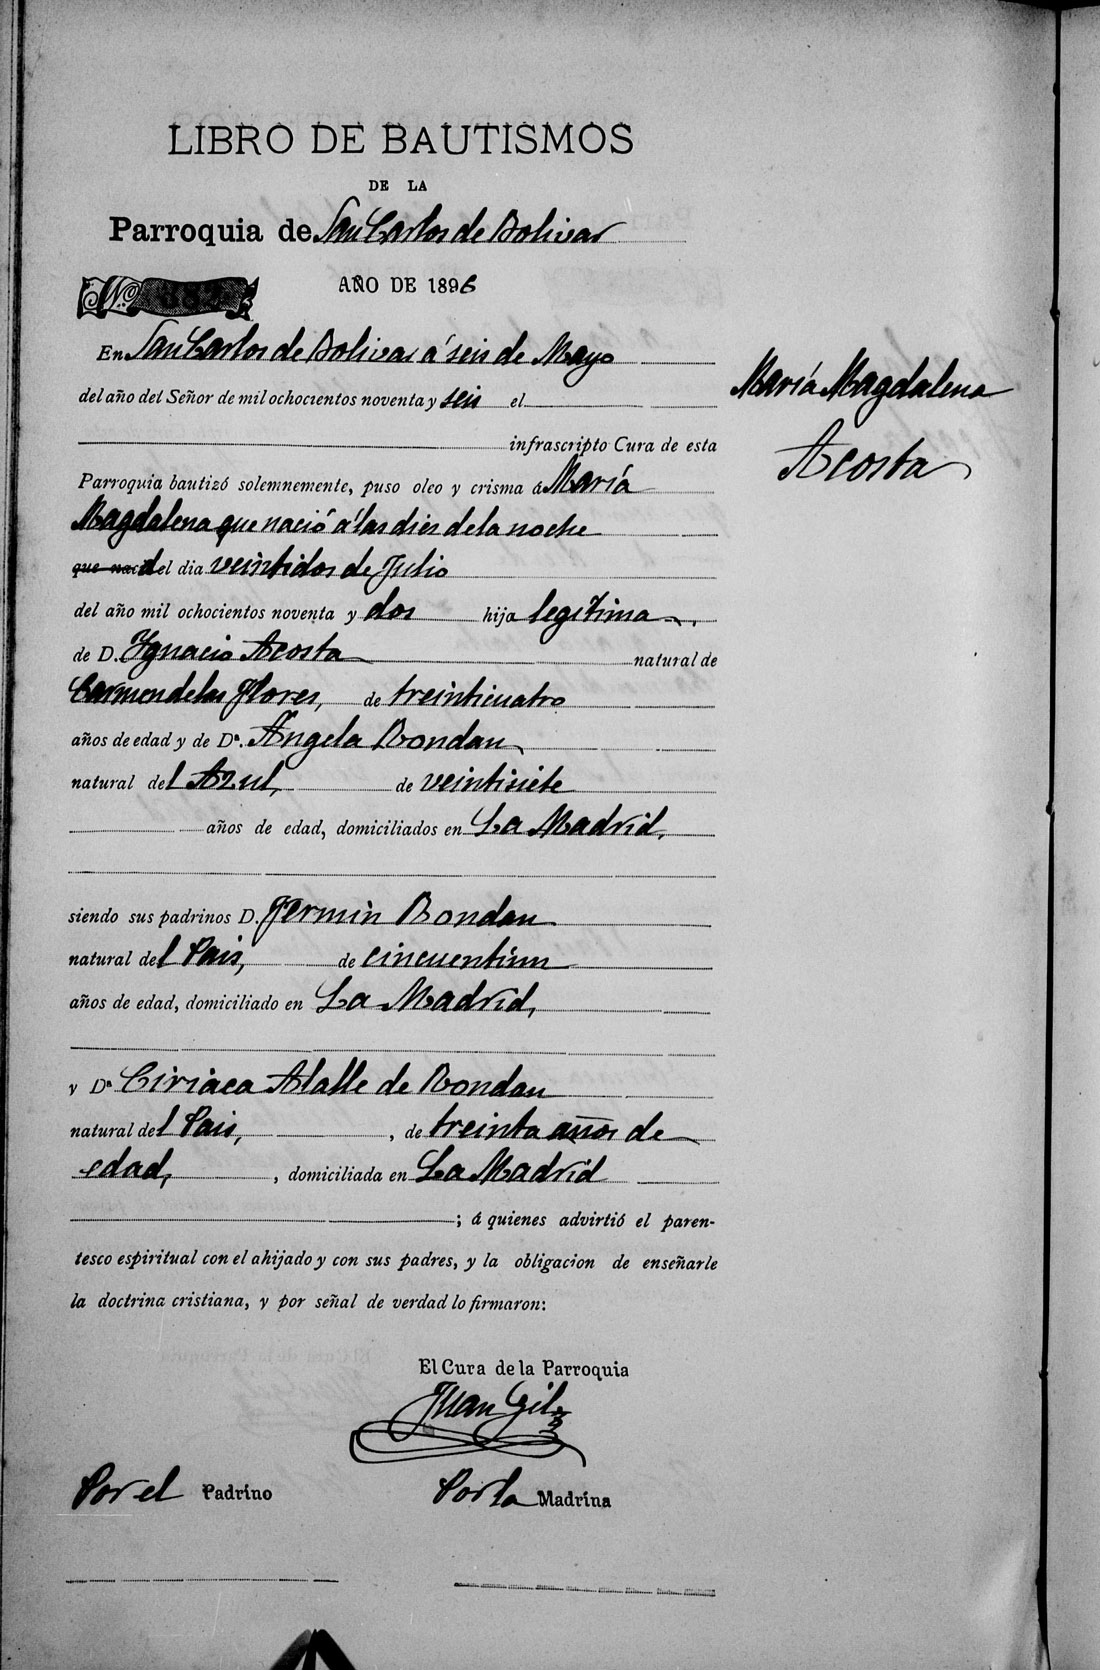 LIBRO DE BAUTISMOS
DE LA
Parroquia de San Carlos de Bolivar
AÑO DE 1896
Nº 382
En San Carlos de Bolivar á seis de Mayo
del año del Señor de mil ochocientos noventa y seis el
infrascripto Cura de esta
Parroquia bautizó solemnemente, puso oleo y crisma á María
Magdalena que nació á las dies de la noche
que nació del dia veintidos de Julio
del año mil ochocientos noventa y dos hija legítima
de D. Ygnacio Acosta natural de
Carmen de las Flores, de treinticuatro
años de edad y de Dª. Ángela Rondan
natural del Azul, de veintisiete
años de edad, domiciliados en La Madrid,
siendo sus padrinos D. Fermin Rondan
natural del Pais, de cincuentiun
años de edad, domiciliado en La Madrid,
y Dª Ciriaca Alalle de Rondan
natural del Pais, , de treinta años de
edad, , domiciliada en La Madrid
; á quienes advirtió el paren-
tesco espiritual con el ahijado y con sus padres, y la obligacion de enseñarle
la doctrina cristiana, y por señal de verdad lo firmaron:
El Cura de la Parroquia
Juan Gil
Por el Padrino Por la Madrina
María Magdalena
Acosta